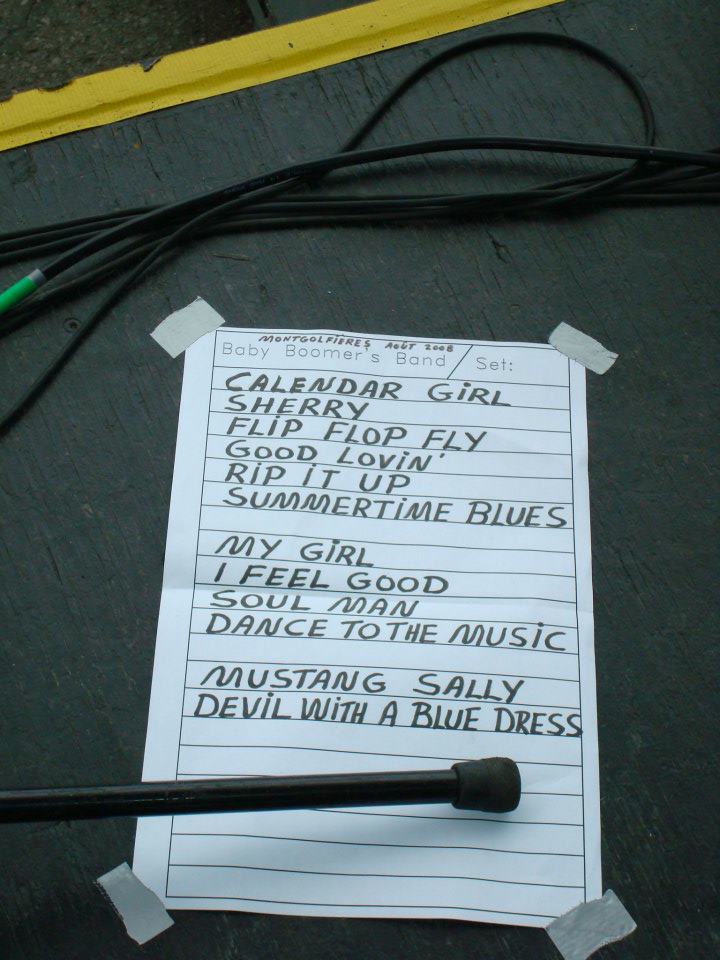 MONTGOLFIÈRES AOÛT 2008
Baby Boomer's Band / Set:
CALENDAR GIRL
SHERRY
FLIP FLOP FLY
GOOD LOVIN'
RIP IT UP
SUMMERTIME BLUES
MY GIRL
I FEEL GOOD
SOUL MAN
DANCE TO THE MUSIC
MUSTANG SALLY
DEVIL WITH A BLUE DRESS